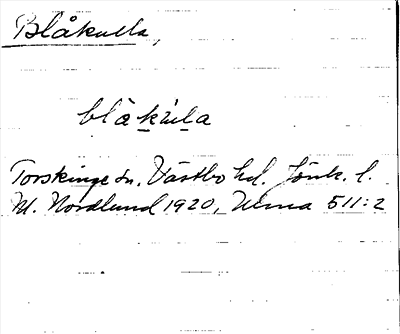 Blåkulla,
blåkúla
Torskinge sn. Västbo hd. Jönk. l.
M. Nordlund 1920, Ulma 511:2